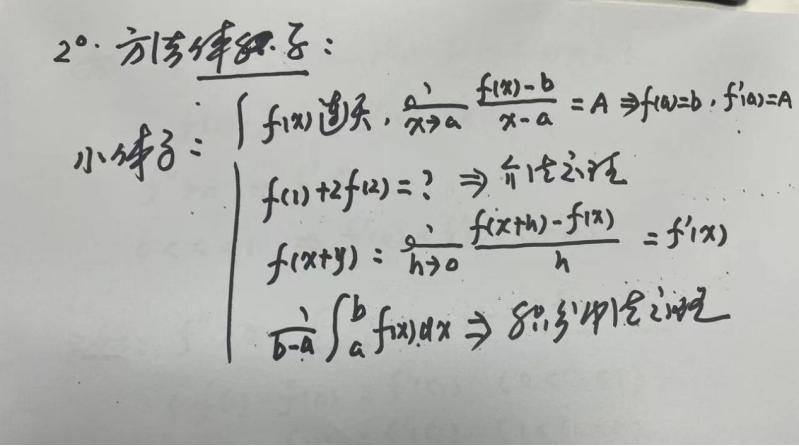 2°. 方法体系:
小体系:
f(x)连续, lim x→a (f(x)-b)/(x-a) = A ⇒ f(a)=b, f'(a)=A
f(1)+2f(2)=? ⇒ 介值定理
f(x+y): lim h→0 (f(x+h)-f(x))/h = f'(x)
1/(b-a) ∫_a^b f(x)dx ⇒ 积分中值定理